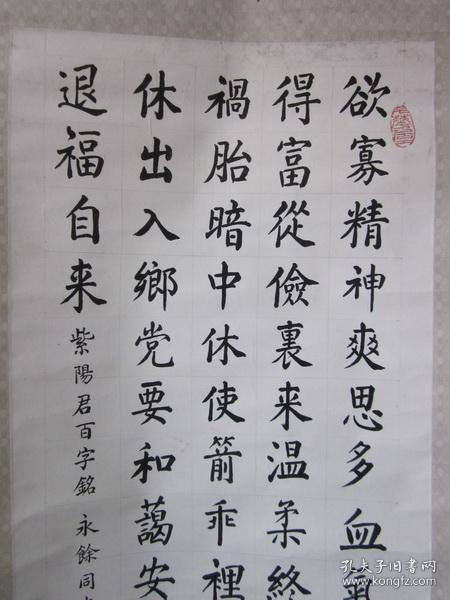 欲寡精神爽思多血氣
得富從儉裏来温柔終
禍胎暗中休使箭乖裡
休出入鄉党要和藹安
退福自来
紫陽君百字銘 永餘同
孔夫子旧书网
kongfz.com